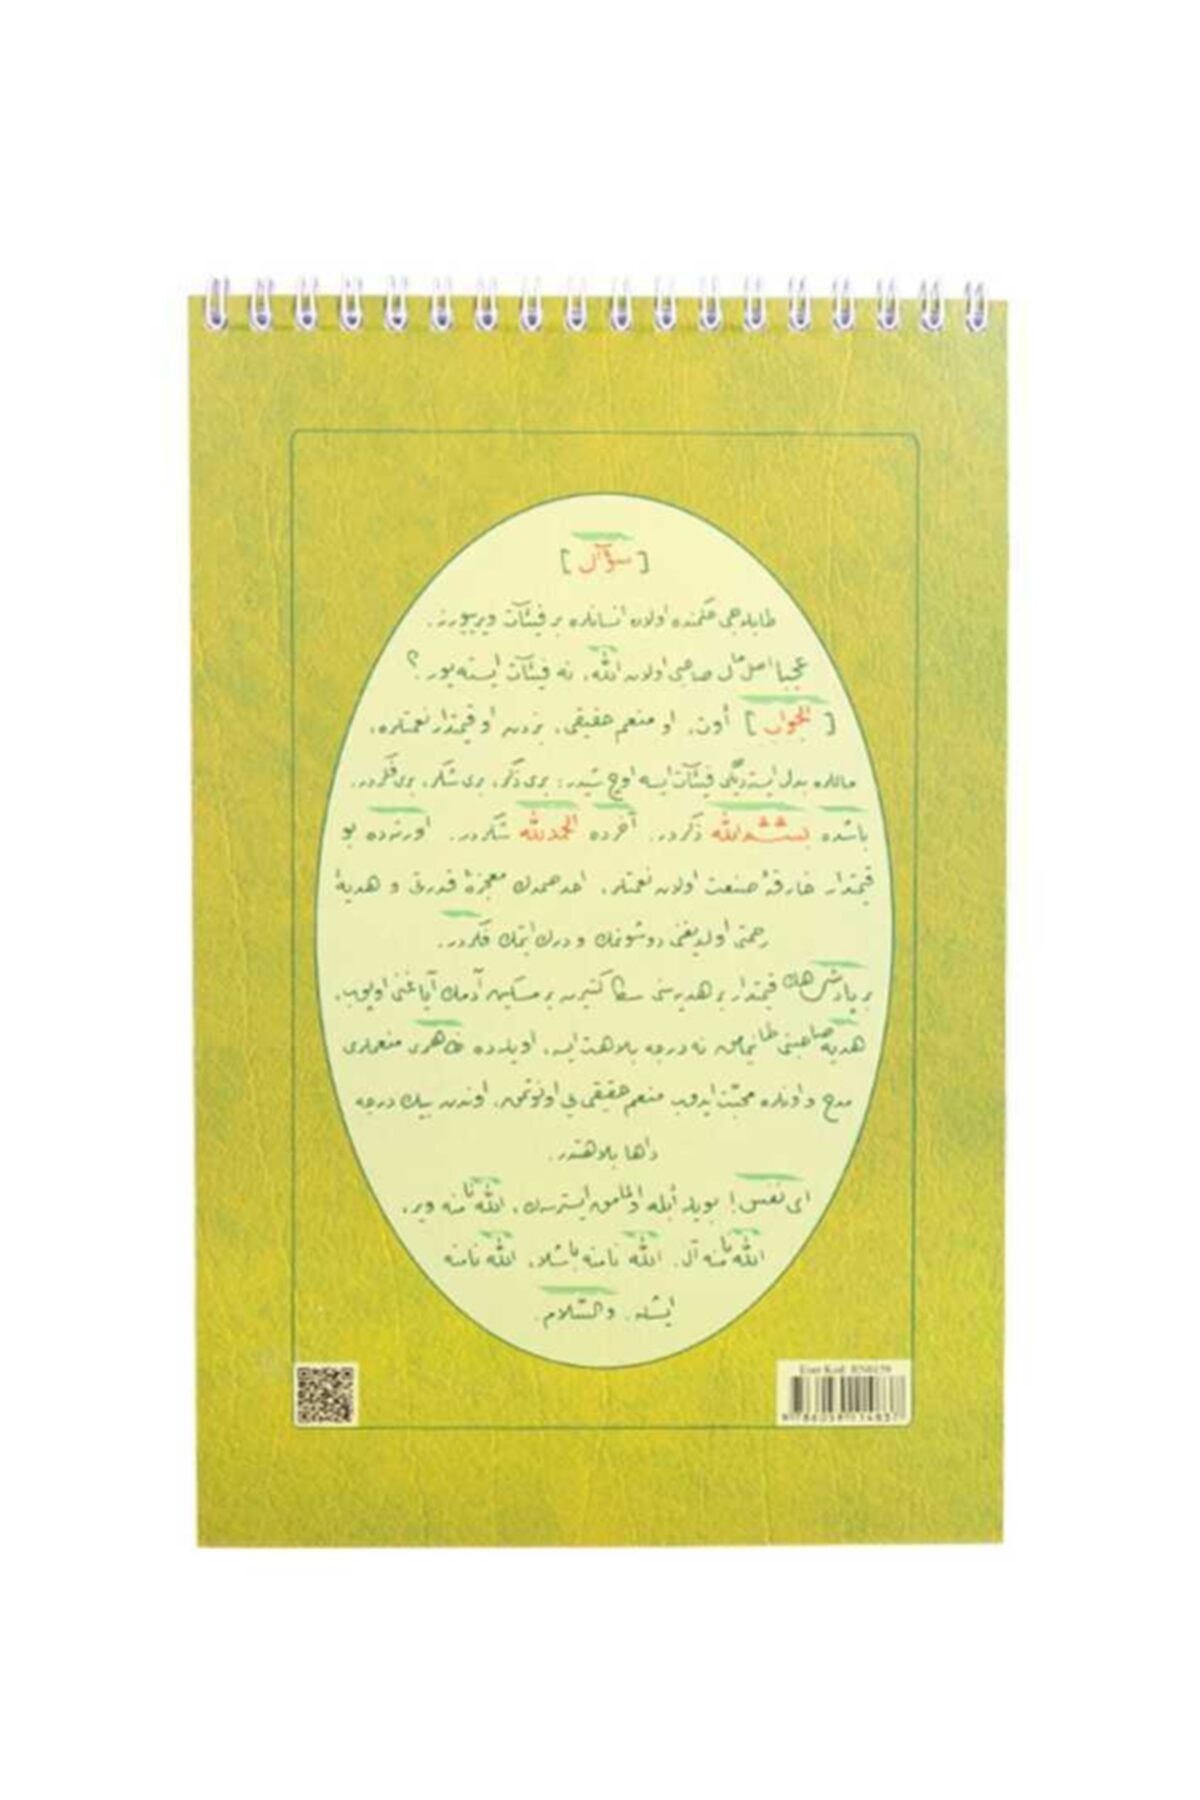 [سؤآل]
طابله‌جی حكمنده اولان انسانلره بر فیئآت ویرییورز.
عجبا اصل مال صاحبی اولان الله، نه فیئآت ایسته‌یور؟
[الجواب] أوت، او منعم حقیقی، بزدن او قیمتدار نعمتلره،
ماللره بدل ایستدیگی فیئآت ایسه اوچ شیدر: بری ذكر، بری شكر، بری فكردر.
باشده بسم‌الله ذكردر. آخرده الحمدلله شكردر. اورته‌ده بو
قیمتدار خارقهٔ صنعت اولان نعمتلر، احد صمدك معجزهٔ قدرتی و هدیهٔ
رحمتی اولدیغنی دوشونمك و درك ایتمك فكردر.
بر پادشاهك قیمتدار بر هدیه‌سنی سڭا كتیرن بر مسكین آدمك آیاغنی اوپوب،
هدیه صاحبنی طانیمامق نه درجه بلاهت ایسه، اویله‌ده ظاهری منعملری
مدح و اونلره محبّت ایدوب منعم حقیقی‌یی اونوتمق، اوندن بیڭ درجه
داها بلاهتدر.
ای نفس! بویله أبله اولمامق ایسترسه‌ڭ، الله نامنه ویر،
الله نامنه آل. الله نامنه باشلا، الله نامنه
ایشله. والسّلام.